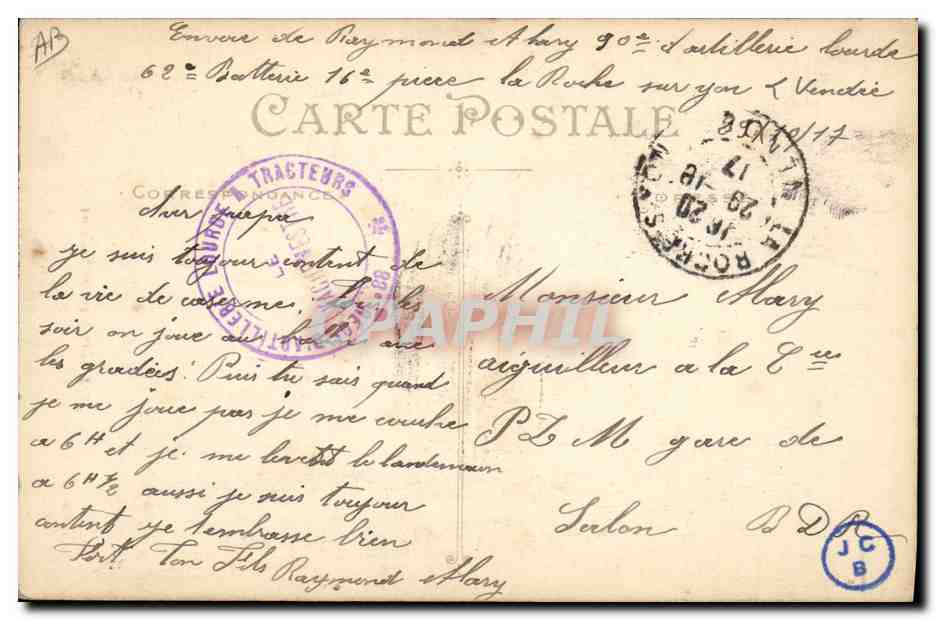 AB
Envoie de Raymond Alary 90e d'artillerie lourde
62e Batterie 16e piece la Roche sur yon Vendée
29/10/17
CARTE POSTALE
CORRESPONDANCE
ARTILLERIE LOURDE A TRACTEURS
88e
LE
VAGUEMESTRE
LA ROCHE S YON
VENDEE
16 20
29 - 10
17
papa
je suis toujour content de
la vie de caserne. les
soir on joue aux avec
les gradées! Puis tu sais quand
je me joue pas je me couche
a 6H et je me leve le landemain
a 6H 1/2 aussi je suis toujour
content je tembrasse bien
Fort Ton Fils Raymond Alary
Monsieur Alary
aiguilleur a la Cie
PLM gare de
Salon BDR
CPAPHIL
JCB